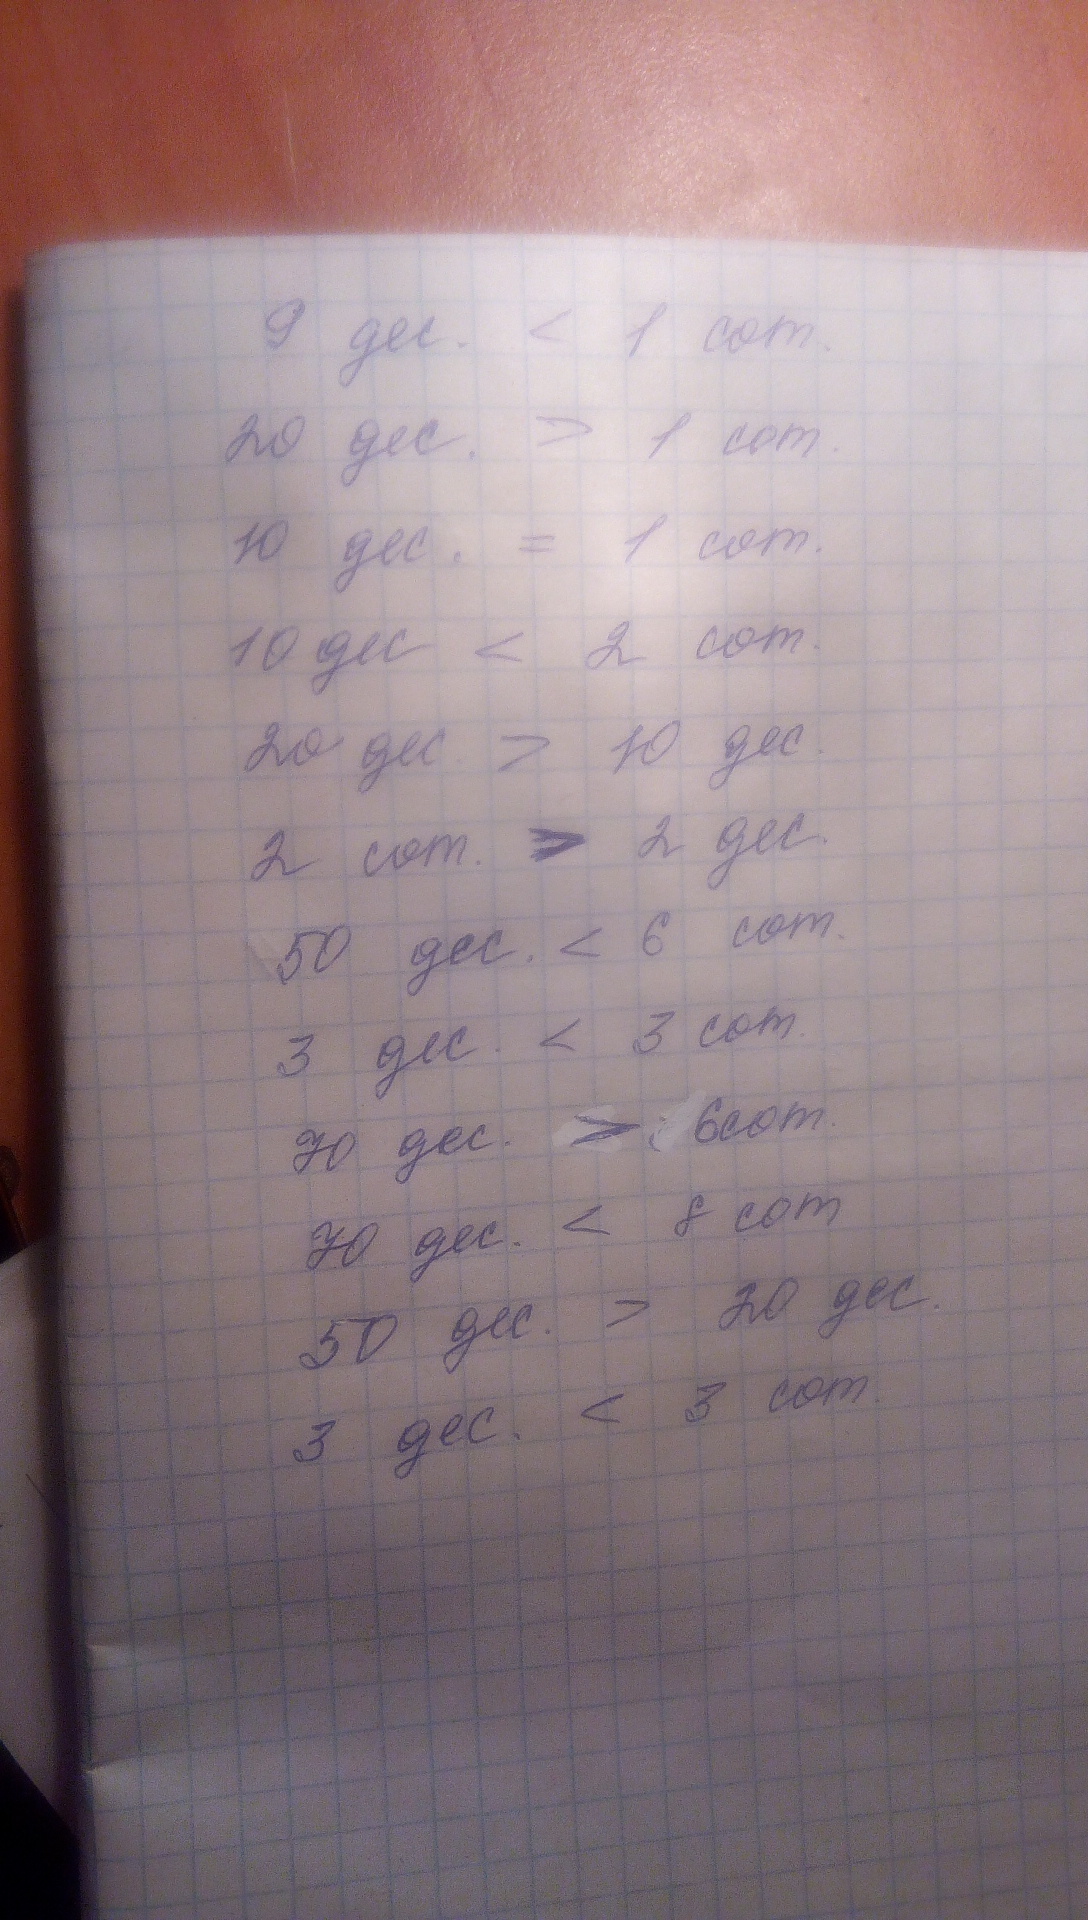 9 дес. < 1 сот.
20 дес. > 1 сот.
10 дес. = 1 сот.
10 дес < 2 сот.
20 дес. > 10 дес.
2 сот. > 2 дес.
50 дес. < 6 сот.
3 дес. < 3 сот.
70 дес. > 6 сот.
70 дес. < 8 сот
50 дес. > 20 дес.
3 дес. < 3 сот.